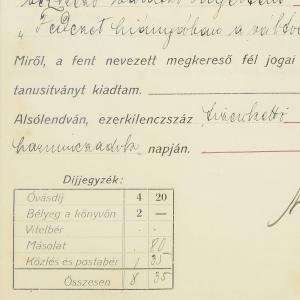 „Fedezet hiányában a váltó
Miről, a fent nevezett megkereső fél jogai
tanusitványt kiadtam.
Alsólendván, ezerkilenczszáz tizenkettő
harminczadik napján.
Díjjegyzék:
Óvásdíj 4 20
Bélyeg a könyvön 2 —
Vitelbér . .
Másolat . 80
Közlés és postabér 1 35
Összesen 8 35